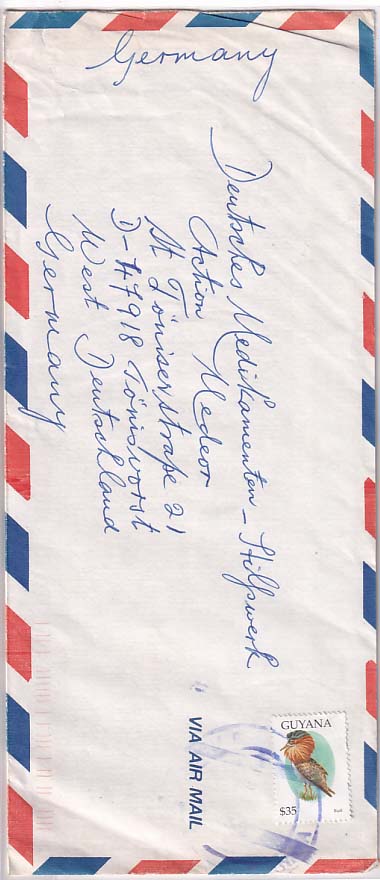 Germany
Deutsches Medikamenten-Hilfswerk
Action Medeor
St Töniserstraße 21
D-47918 Tönisvorst
West Deutschland
Germany
VIA AIR MAIL
GUYANA
$35